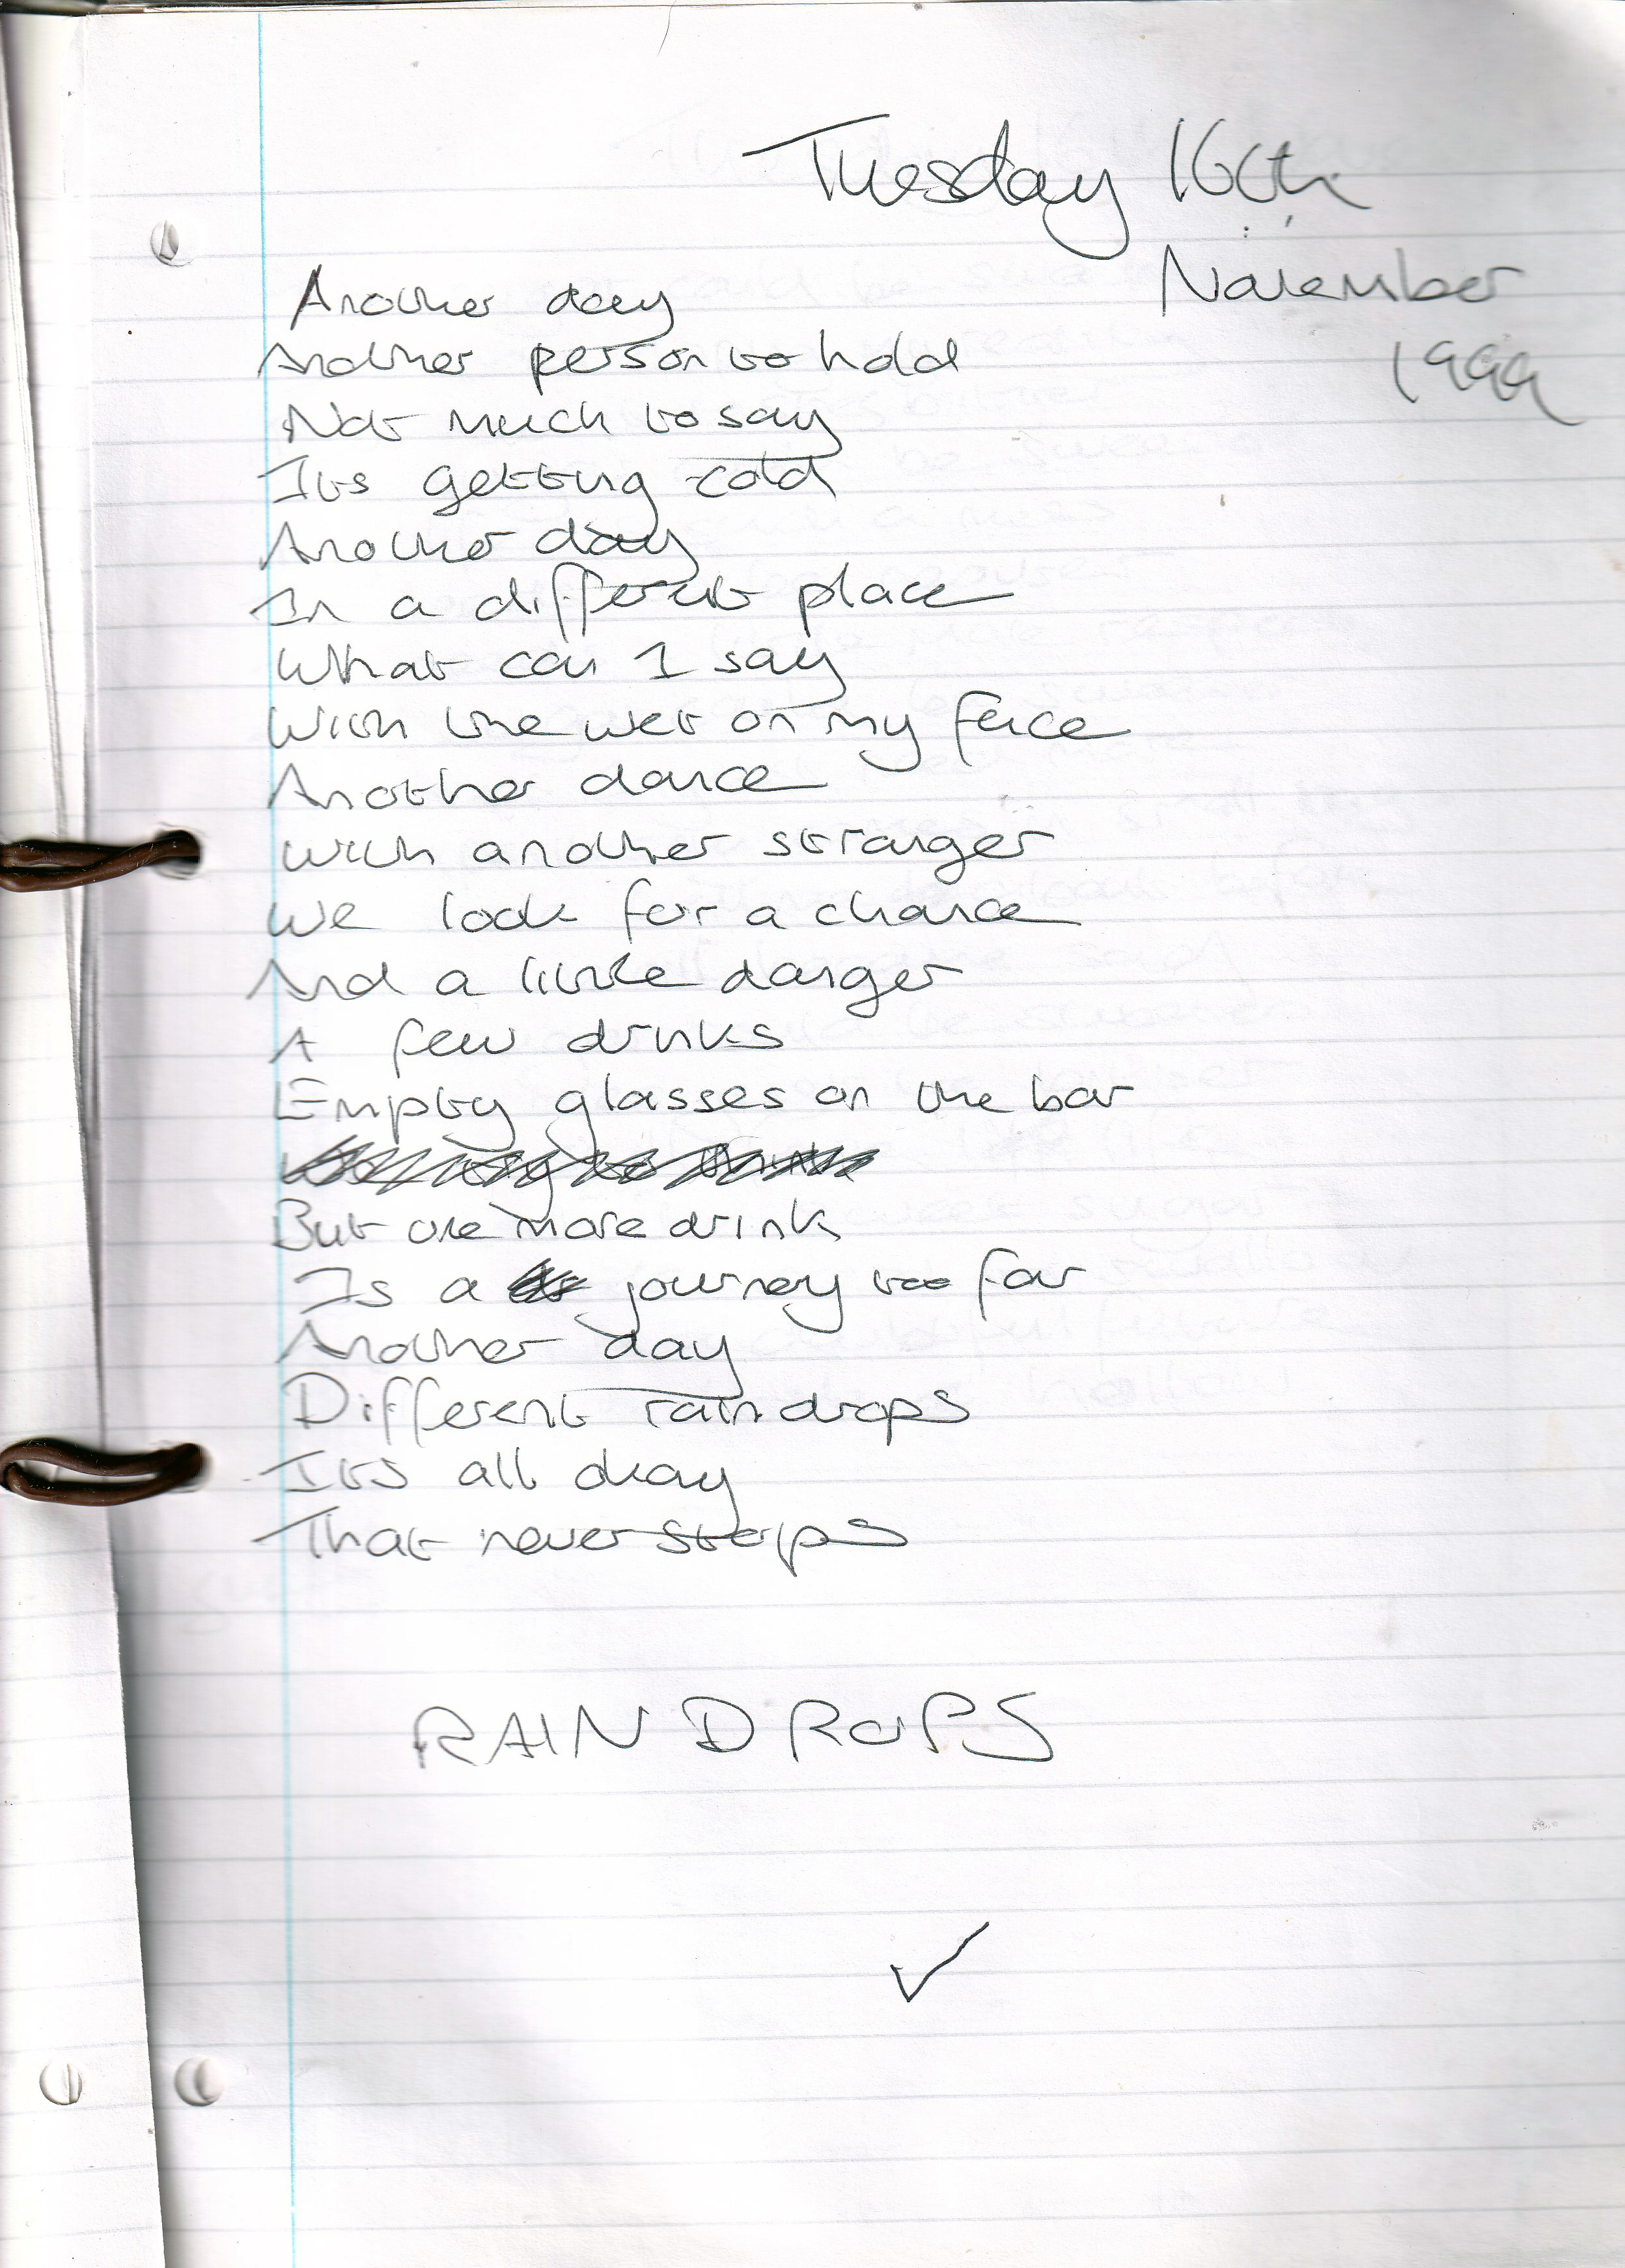 Tuesday 16th
November
1999
Another day
Another person to hold
Not much to say
Its getting cold
Another day
In a different place
What can I say
With the wet on my face
Another dance
With another stranger
We look for a chance
And a little danger
A few drinks
Empty glasses on the bar
But one more drink
Is a journey too far
Another day
Different raindrops
Its all okay
That never stops
RAINDROPS